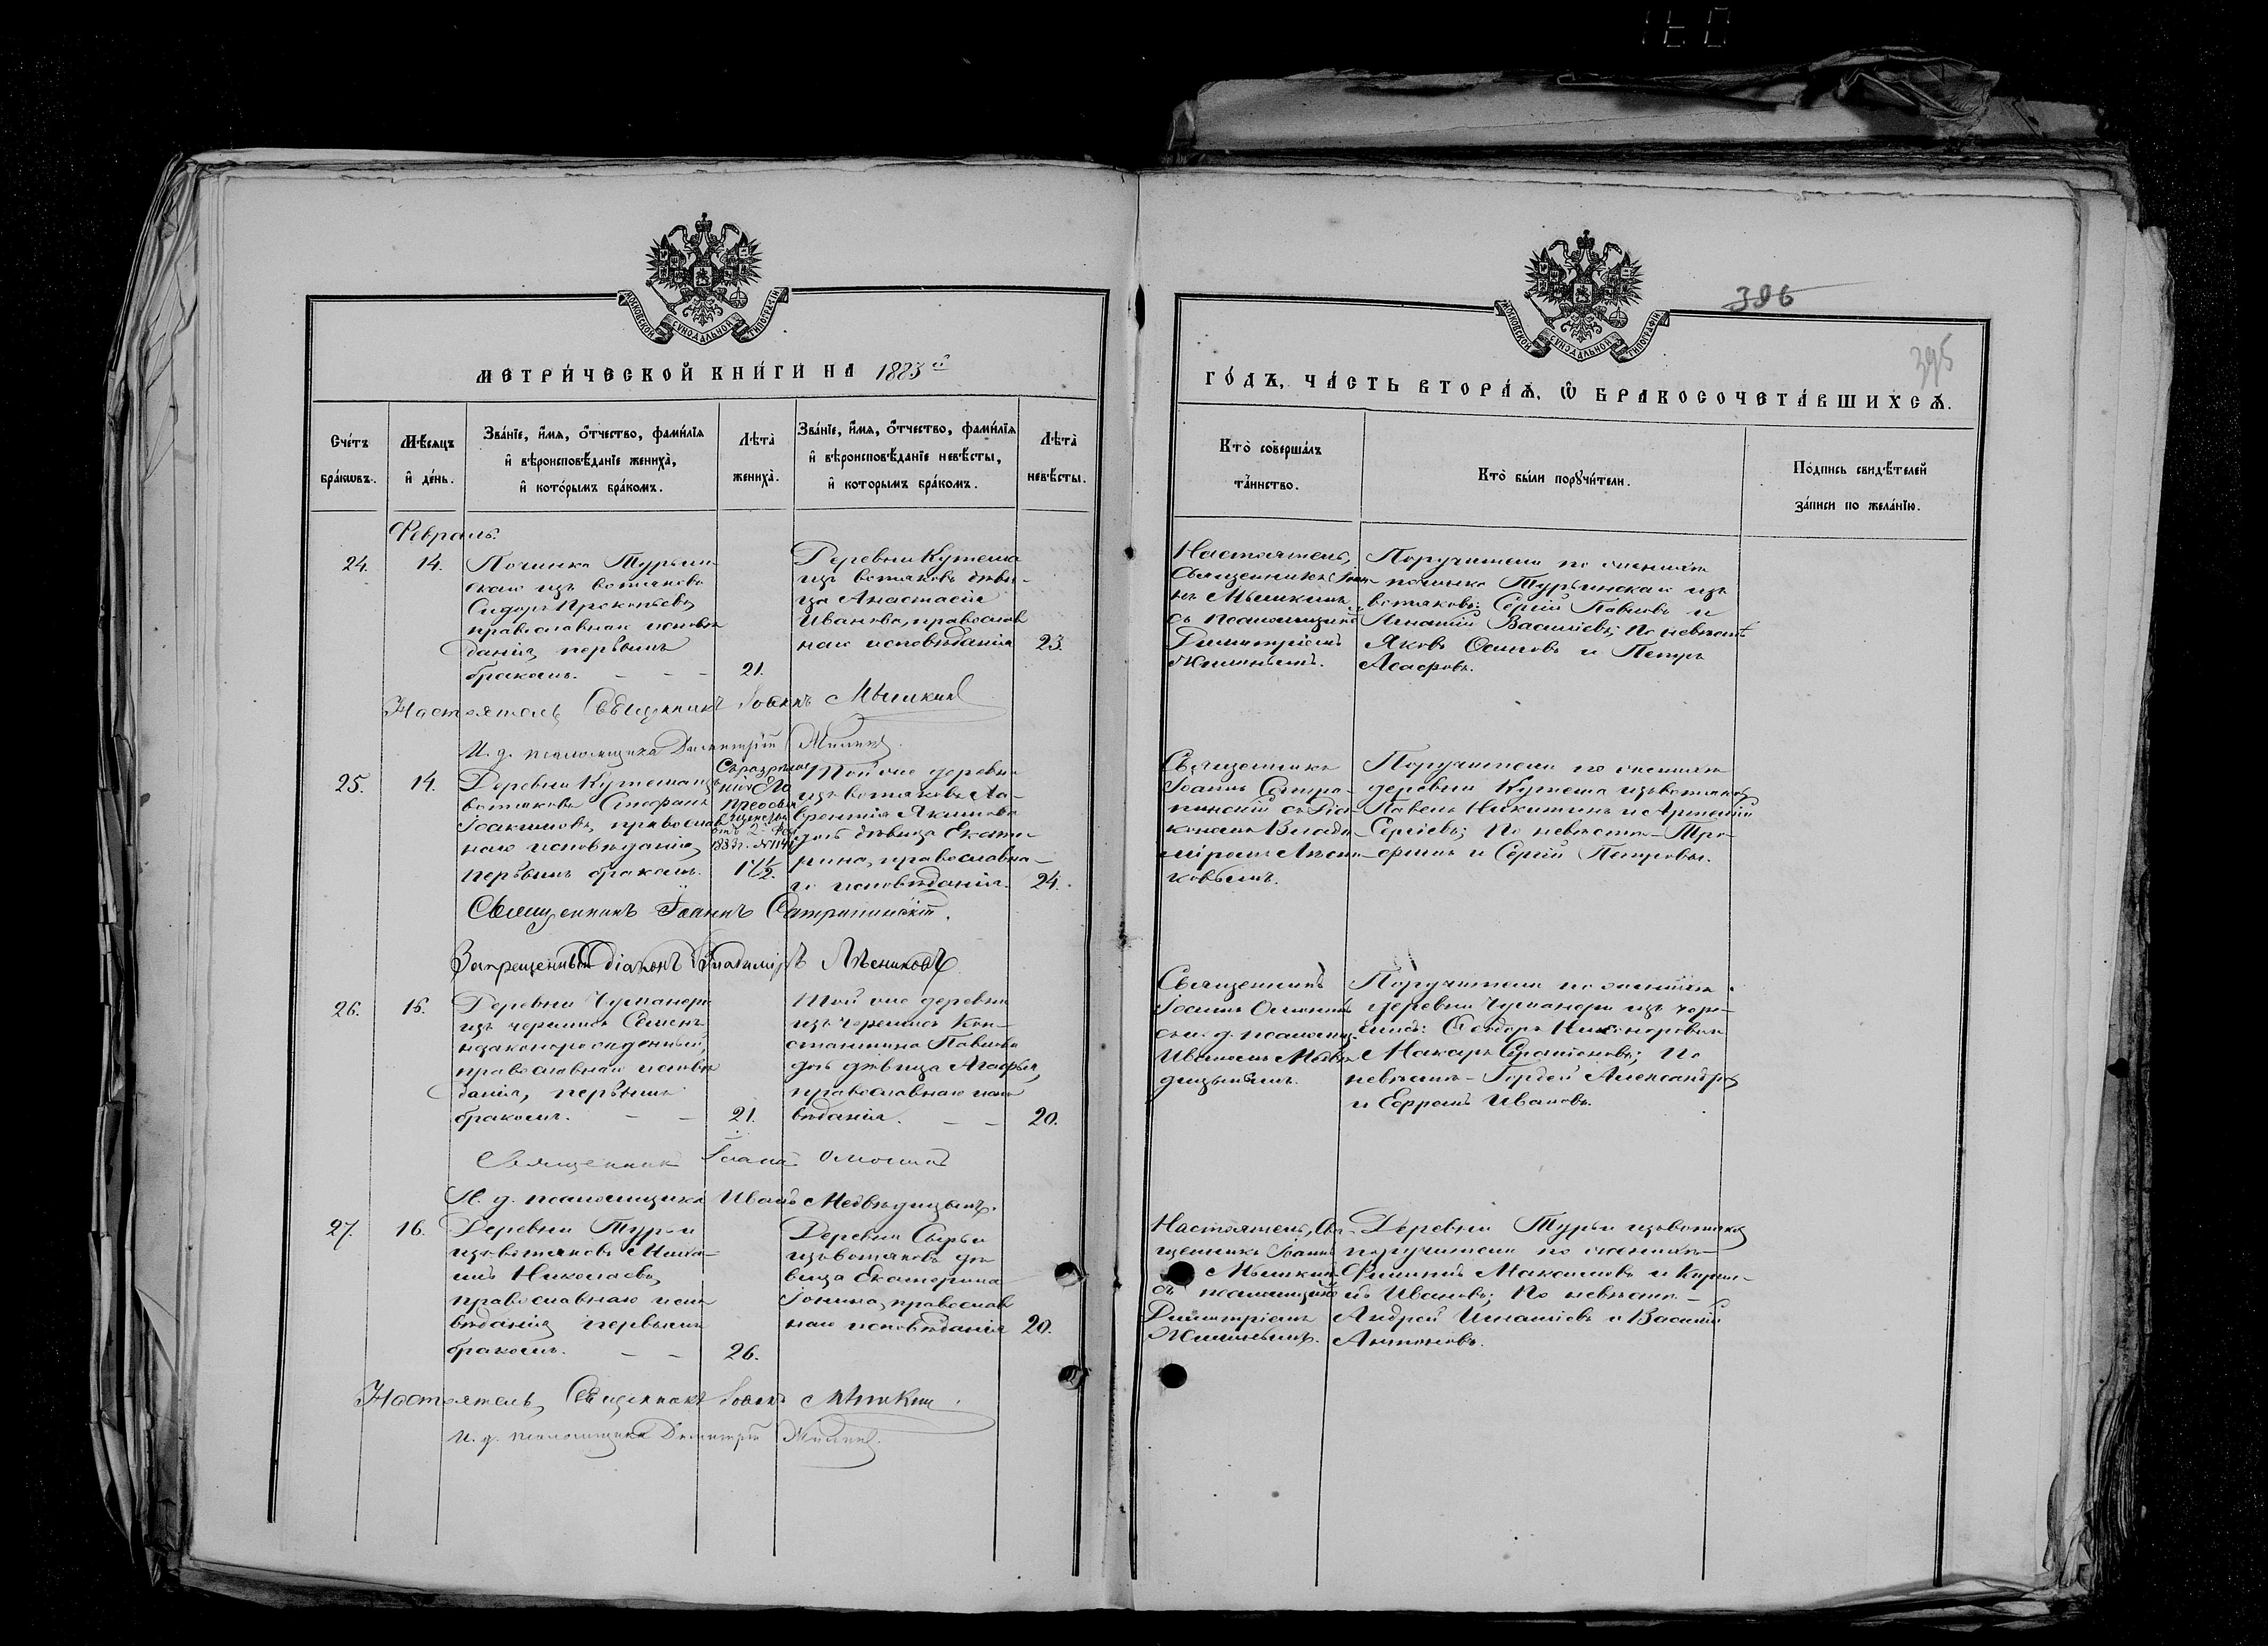 396
395
МОСКОВСКОЙ СѴНОДАЛЬНОЙ ТИПОГРАФІИ
МЕТРИ́ЧЕСКОЙ КНИ́ГИ НА 1883 й
Сче́тъ бра́кѡвъ.
Мѣ́сяцъ и҆ де́нь.
Зва́нїе, и҆́мя, ѻ҆́тчество, фами́лїя и҆ вѣроисповѣ́данїе жениха̀, и҆ кото́рымъ бра́комъ.
Лѣ́та жениха̀.
Зва́нїе, и҆́мя, ѻ҆́тчество, фами́лїя и҆ вѣроисповѣ́данїе невѣ́сты, и҆ которымъ бра́комъ.
Лѣ́та невѣ́сты.
Февраль.
24.
14.
Починка Турьин-
скаго изъ вотяковъ
Сидоръ Прокопьевъ,
православнаго исповѣ
данія, первымъ
бракомъ.
21.
Деревни Кутеша
изъ вотяковъ дѣви-
ца Анастасія
Иванова, православ
наго исповѣданія
23.
Настоятель, Священникъ Іоаннъ Мышкинъ
И. д. псаломщика Димитрій
25.
14.
Деревни Кутеша изъ
вотяковъ Стефанъ
Іоакимовъ, православ
наго исповѣданія,
первымъ бракомъ.
Съ разрѣше
нія Его
Преосвя
щенства
отъ 2 Фев
1883 г. №1141
17 1/2.
Той же деревни
изъ вотяковъ Ла-
врентія Якимова
дочь дѣвица Екате-
рина, православна-
го исповѣданія.
24.
Священникъ Іоаннъ Сатрапинскій.
Запрещенный Діаконъ Владиміръ Лѣсниковъ
26.
15.
Деревни Чуманери
изъ черемисъ Семенъ
незаконнорожденный,
православнаго исповѣ
данія, первымъ
бракомъ.
21.
Той же деревни
изъ черемисъ Кон-
стантина Павлова
дочь дѣвица Агафья,
православнаго испо
вѣданія.
20.
Священникъ Іоаннъ
И. д. псаломщика Иванъ Медвѣдицынъ.
27.
16.
Деревни Турьи
изъ вотяковъ Миха-
илъ Николаевъ,
православнаго испо
вѣданія, первымъ
бракомъ.
26.
Деревни Сырьи
изъ вотяковъ дѣ-
вица Екатерина
Іонина, православ
наго исповѣданія
20.
Настоятель, Священникъ Іоаннъ Мышкинъ.
И. д. псаломщика Димитрій
МОСКОВСКОЙ СѴНОДАЛЬНОЙ ТИПОГРАФІИ
ГО́ДЪ, ЧА́СТЬ ВТОРА́Я, Ѡ҆ БРАКОСОЧЕТА́ВШИХСЯ.
Кто̀ соверша́лъ та́инство.
Кто̀ бы́ли порꙋчи́тели.
По́дпись свидѣ́телей за́писи по жела́нїю.
Настоятель,
Священникъ Іоан-
нъ Мышкинъ
съ псаломщикомъ
Димитріемъ
Поручители по женихѣ
починка Турьинскаго изъ
вотяковъ: Сергій Павловъ и
Игнатій Васильевъ; По невѣстѣ
Яковъ Осиповъ и Петръ
Асафовъ.
Священникъ
Іоаннъ Сатра-
пинскій съ Діа-
кономъ Влади-
міромъ Лѣсни-
ковымъ.
Поручители по женихѣ
деревни Кутеша изъ вотяковъ
Павелъ Никитинъ и Артемій
Сергіевъ; По невѣстѣ - Тро-
фимъ и Сергій Петровы.
Священникъ
Іоаннъ
съ и. д. псаломщ.
Иваномъ Медвѣ
дицынымъ.
Поручители по женихѣ
деревни Чуманери изъ чере-
мисъ: Ѳеодоръ Никаноровъ и
Макаръ Сератоновъ; По
невѣстѣ - Гордей Александровъ
и Ефремъ Ивановъ.
Настоятель, Свя-
щенникъ Іоаннъ
Мышкинъ
съ псаломщикомъ
Димитріемъ
Деревни Турьи изъ вотяковъ
поручители по женихѣ -
Филиппъ Максимовъ и Кирил-
лъ Ивановъ; По невѣстѣ -
Андрей Игнатіевъ и Василій
Антоновъ.